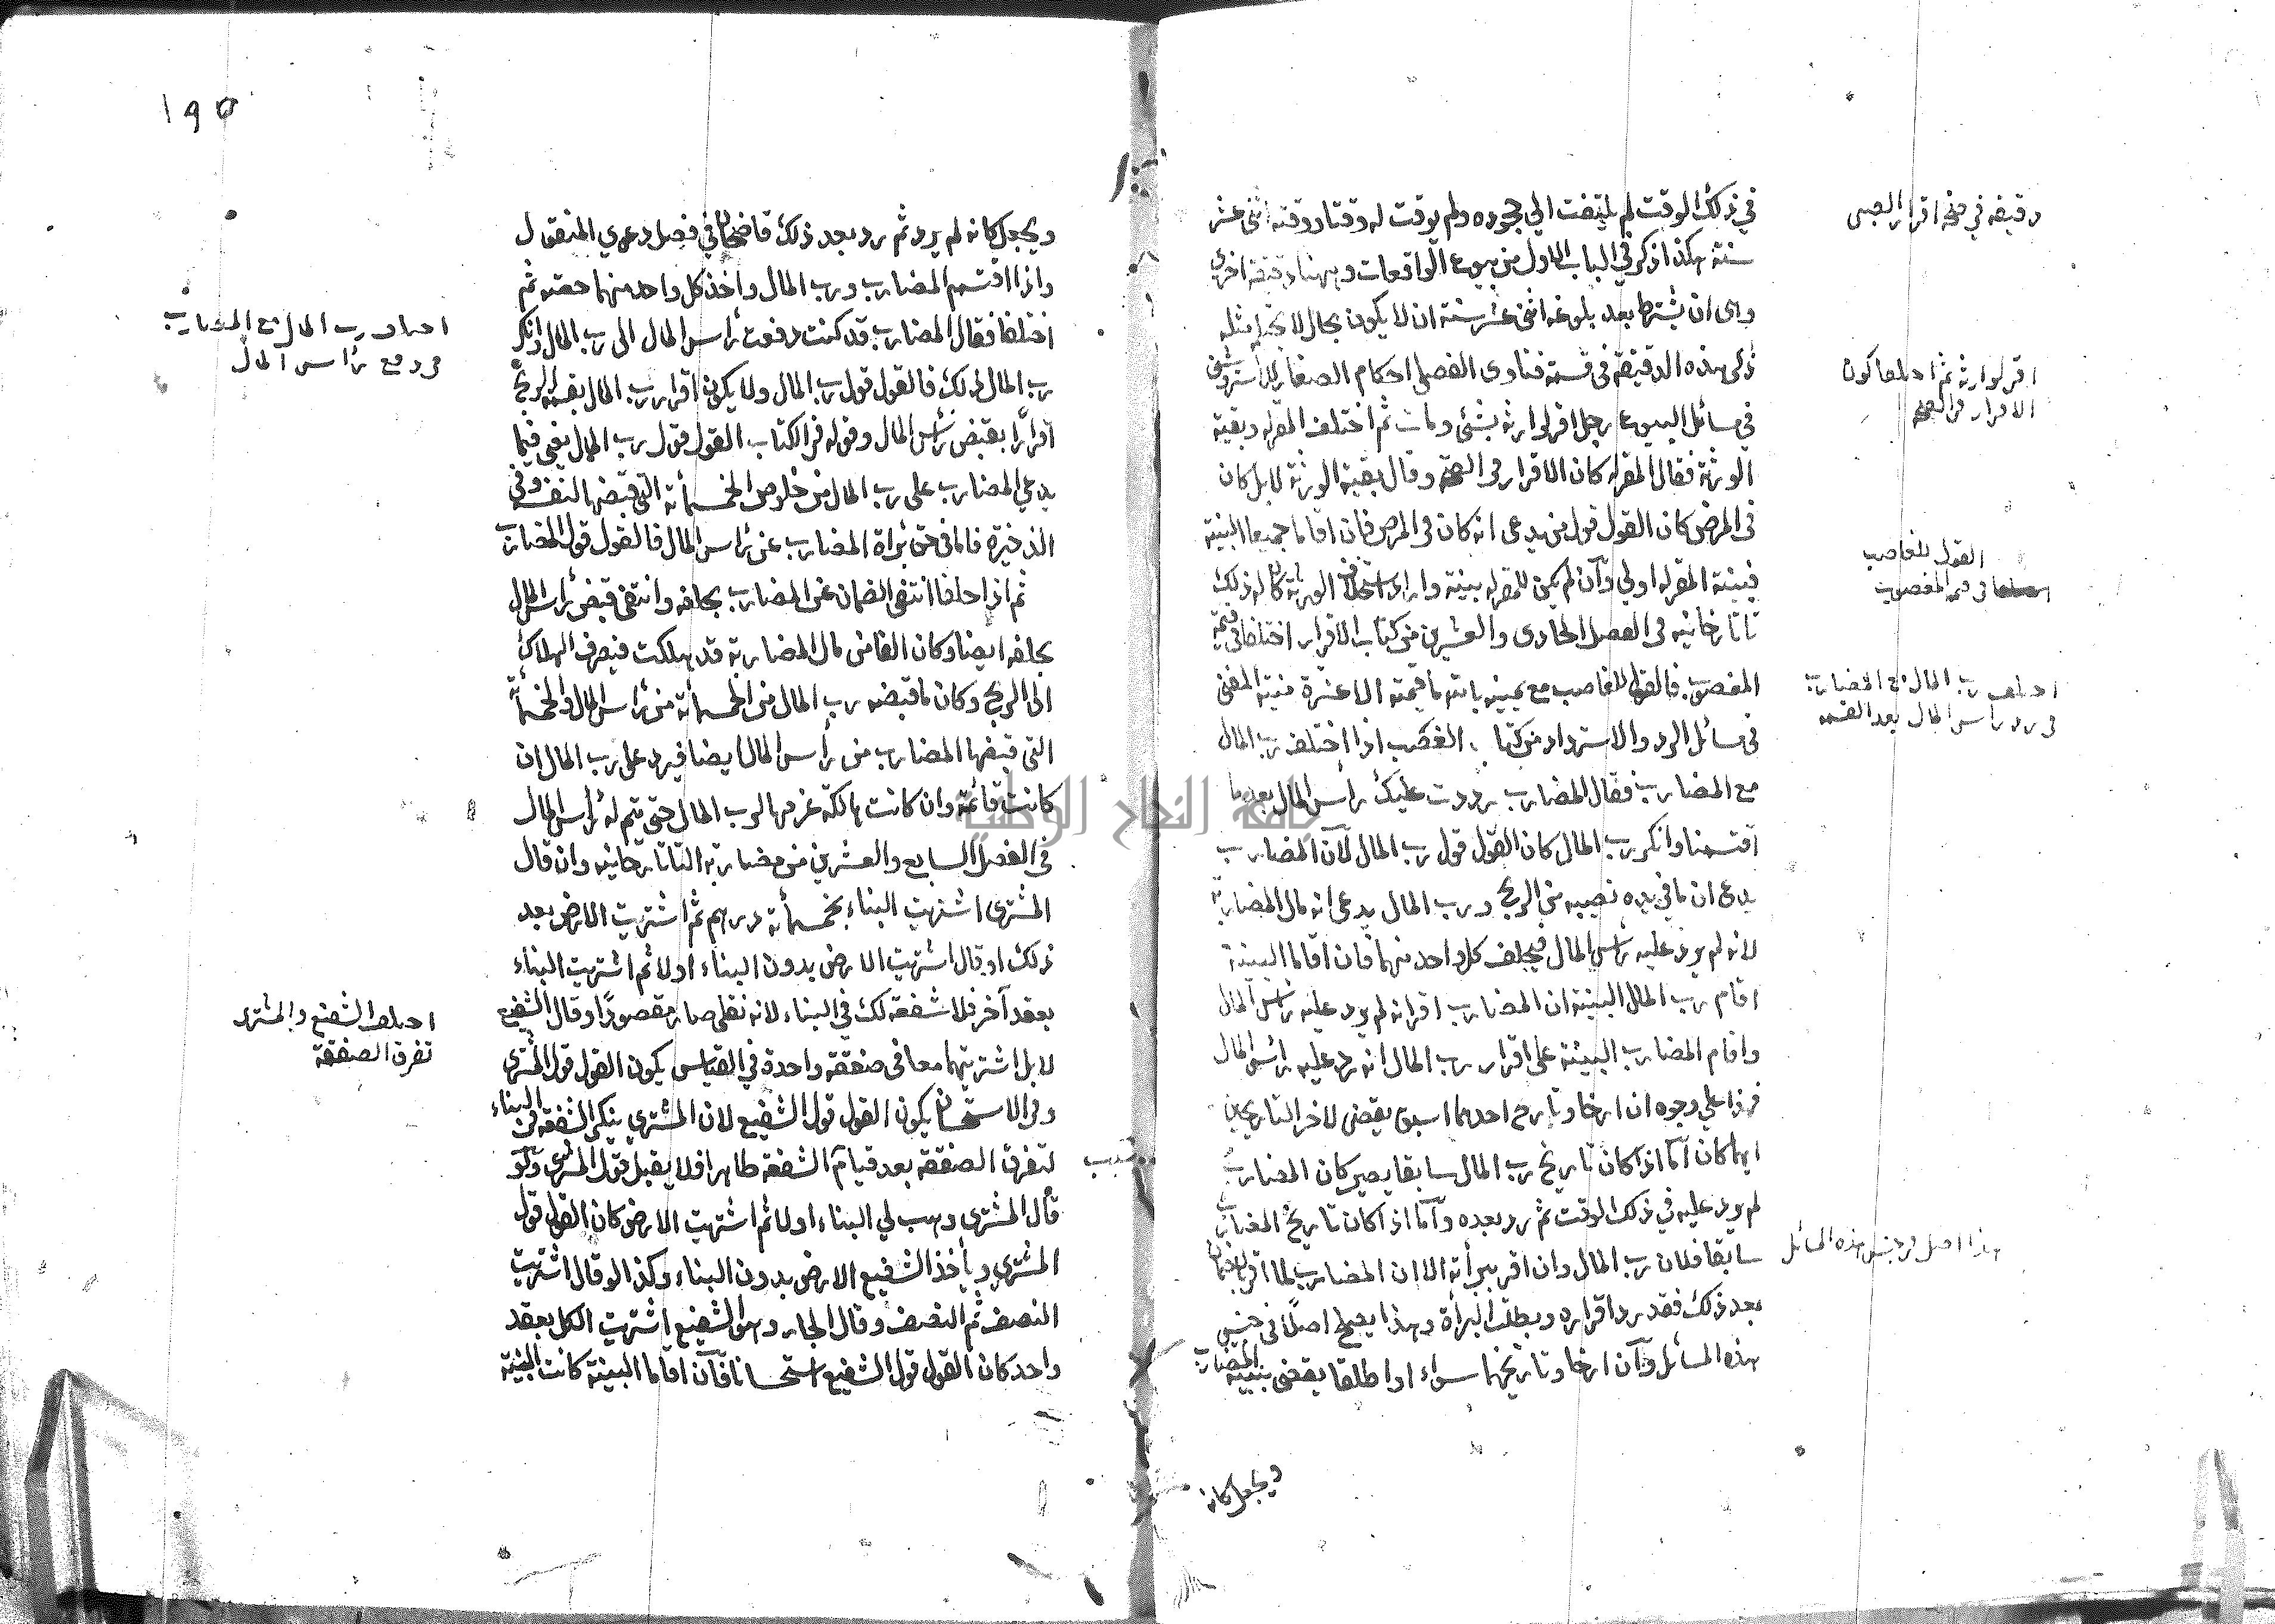 في ذلك الوقت لم يلتفت الي جحوده ولم يوقت له وقتا ووقته اثنى عشر
سنة هكذا ذكر في الباب الاول من بيوع الواقعات وههنا دقيقة اخرى
وهى ان يشترط بعد بلوغه اثنى عشر سنة ان لا يكون بحال لا يحتلم مثله
ذكر هذه الدقيقة فى قسمة فتاوى الفصلى احكام الصغار للاستروشنى
في مسائل البيوع رجل اقر لوارثه بشئ ومات ثم اختلف المقر له وبقية
الورثة فقال المقر له كان الاقرار فى الصحة وقال بقية الورثة لا بل كان
فى المرض كان القول قول من يدعى انه كان فى المرض فان اقاما جميعا البينة
فبينة المقر له اولي وان لم يكن للمقر له بينة واراد استحلاف الورثة كان له ذلك
تاتارخانيه فى الفصل الحادى والعشرين من كتاب الاقرار اختلفا فى قيمة
المغصوب فالقول للغاصب مع يمينه بالله ما قيمته الا عشرة منية المفتى
فى مسائل الرد والاسترداد من كتاب الغصب اذا اختلف رب المال
مع المضارب فقال المضارب رددت عليك رأس المال بعد ما
اقتسمنا وانكر رب المال كان القول قول رب المال لان المضارب
يدعى ان ما في يده نصيبه من الربح ورب المال يدعى انه مال المضاربة
لانه لم يرد عليه رأس المال فيحلف كل واحد منهما فان اقاما البينة
اقام رب المال البينة ان المضارب اقر انه لم يرد عليه رأس المال
واقام المضارب البينة على اقرار رب المال انه رد عليه رأس المال
فهذا علي وجوه ان ارخا وتاريخ احدهما اسبق يقضى لاخر التاريخين
ايهما كان اما اذا كان تاريخ رب المال سابقا يصير كان المضارب
لم يرد عليه في ذلك الوقت ثم رد بعده واما اذا كان تاريخ المضارب
سابقا فلان رب المال وان اقر ببرأته الا ان المضارب لما اقر بالضمان
بعد ذلك فقد رد اقراره وبطلت البرأة وهذا يصلح اصلا فى جنس
هذه المسائل وان ارخا وتاريخهما سواء او اطلقا يقضى ببينة المضارب
ويجعل كانه
دقيقه في صحة اقرار الصبى
اقر لوارثه ثم اختلفا كون
الاقرار فى الصحة
القول للغاصب
فى قيمة المغصوب
اختلف رب المال مع المضارب
فى رد رأس المال بعد القسمة
هذا اصل فى جنس هذه المسائل
جامعة النجاح الوطنية
١٩٥
ويجعل كانه لم يرد ثم رد بعد ذلك قاضيخان في فصل دعوي المنقول
واذا اقتسم المضارب ورب المال واخذ كل واحد منهما حصته ثم
اختلفا فقال المضارب قد كنت دفعت رأس المال الى رب المال وانكر
رب المال ذلك فالقول قول رب المال ولا يكون اقرار رب المال بقسمة الربح
اقرارًا بقبض رأس المال وقوله فى الكتاب القول قول رب المال يعنى فيما
يدعي المضارب على رب المال من خلوص الخمسمأئة التى قبضها لنفسه وفي
الذخيرة فاما فى حق براة المضارب عن رأس المال فالقول قول المضارب
ثم اذا حلفا انتفى الضمان عن المضارب بحلفه وانتفى قبض رأس المال
بحلفه ايضا وكان الفا من مال المضاربة قد هلكت فيصرف الهلاك
الى الربح وكان ما قبضه رب المال من الخمسمأئة من رأس المال والخمسمأئة
التى قبضها المضارب من رأس المال ايضا فيرد على رب المال ان
كانت قائمة وان كانت هالكة غرمها لرب المال حتى يتم له رأس المال
فى الفصل السابع والعشرين من مضاربة التاتارخانيه وان قال
المشترى اشتريت البناء بخمسمأئة درهم ثم اشتريت الارض بعد
ذلك او قال اشتريت الارض بدون البناء اولا ثم اشتريت البناء
بعقد آخر فلا شفعة لك في البناء لانه نقلى صار مقصودًا وقال الشفيع
لا بل اشتريتهما معا فى صفقة واحدة في القياس يكون القول قول المشترى
وفى الاستحسان يكون القول قول الشفيع لان المشتري ينكر الشفعة فى البناء
لتفرق الصفقة بعد قيام الشفعة ظاهرا فلا يقبل قول المشترى ولو
قال المشترى وهب لي البناء اولا ثم اشتريت الارض كان القول قول
المشترى ويأخذ الشفيع الارض بدون البناء وكذا لو قال اشتريت
النصف ثم النصف وقال الجار وهو الشفيع اشتريت الكل بعقد
واحد كان القول قول الشفيع استحسانا فان اقاما البينة كانت البينة
اختلف رب المال مع المضارب
فى دفع رأس المال
اختلف الشفيع والمشترى
تفرق الصفقة